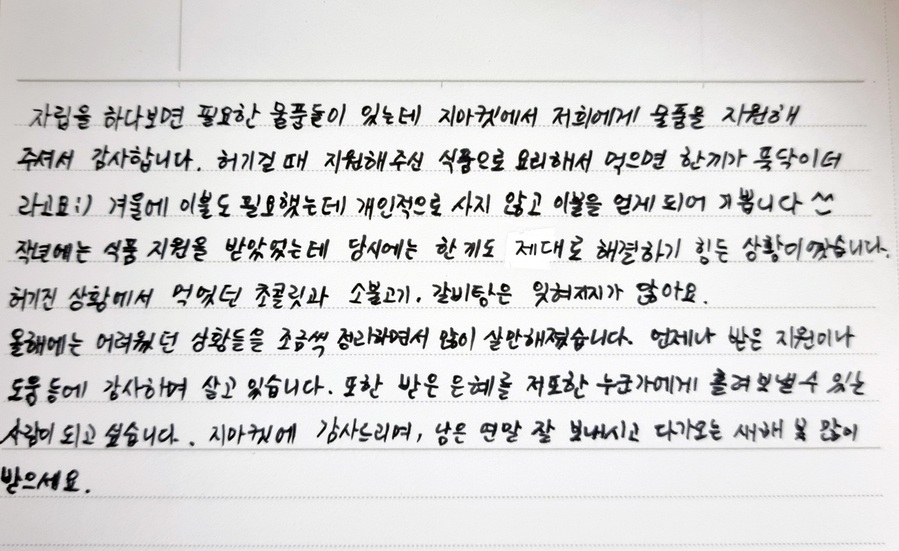 자립을 하다보면 필요한 물품들이 있는데 지마켓에서 저희에게 물품을 지원해
주셔서 감사합니다. 허기질 때 지원해주신 식품으로 요리해서 먹으면 한끼가 뚝딱이더
라고요:) 겨울에 이불도 필요했는데 개인적으로 사지 않고 이불을 얻게 되어 기쁩니다 ^^
작년에는 식품 지원을 받았었는데 당시에는 한 끼도 제대로 해결하기 힘든 상황이었습니다.
허기진 상황에서 먹었던 초콜릿과 소불고기. 갈비탕은 잊혀지지가 않아요.
올해에는 어려웠던 상황들을 조금씩 정리하면서 많이 살만해졌습니다. 언제나 받은 지원이나
도움 등에 감사하며 살고 있습니다. 또한 받은 은혜를 저 또한 누군가에게 흘려 보낼 수 있는
사람이 되고 싶습니다. 지마켓에 감사드리며, 남은 연말 잘 보내시고 다가오는 새해 복 많이
받으세요.